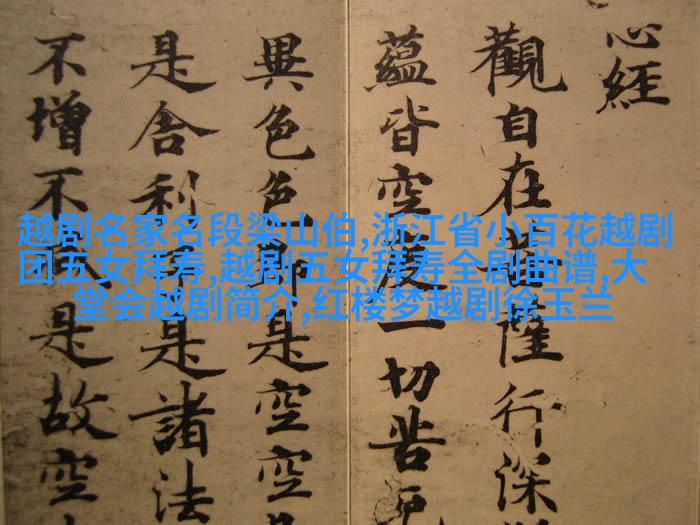 越剧名家名段梁山伯,浙江省小百花越剧
团五女拜寿,越剧五女拜寿全剧曲谱,大
堂会越剧简介,红楼梦越剧徐玉兰
心經
觀自在菩薩行深
蘊皆空度一切苦厄
異色色即是空空
是舍利是諸法
不增不是故空